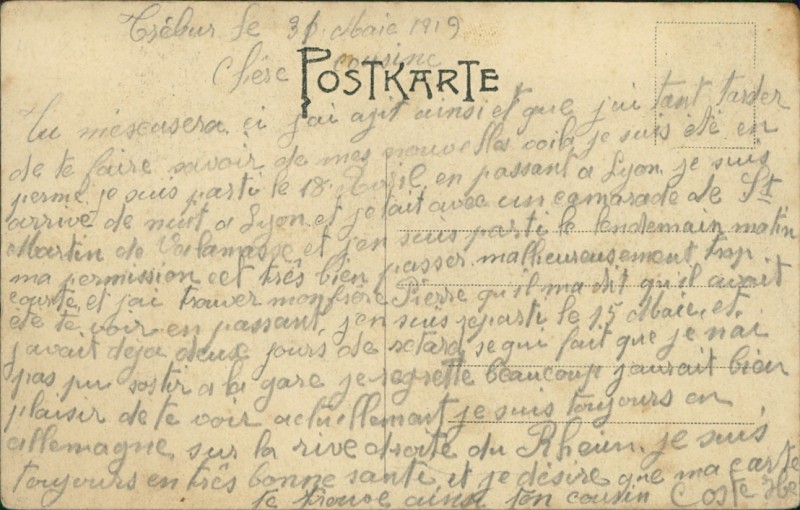 Trébur le 31 Maie 1919
Chére Cousine
POSTKARTE
Tu m'escusera ci j'ai agit ainsi et que j'ai tant tarder
de te faire savoir de mes nouvelles voila je suis été en
perme. je suis parti le 18 Avril, en passant a Lyon. je suis
arrivé de nuit a Lyon et jetait avec un camarade de St
Martin de Valamasse et j'en suis parti le lendemain matin
ma permission cet très bien passer malheureusement trop
courte, et j'ai trouver mon frère Pierre qu'il ma dit qu'il avait
été te voir en passant, j'en suis reparti le 15 Maie, et
j'avait déja deux jours de retard se qui fait que je n'ai
pas pu sortir a la gare je regrette beaucoup j'aurait bien
plaisir de te voir actuellemant je suis toujours en
allemagne, sur la rive droite du Rheun. je suis
toujours en très bonne santé et je désire que ma carte
te trouve ainsi ton cousin Coste